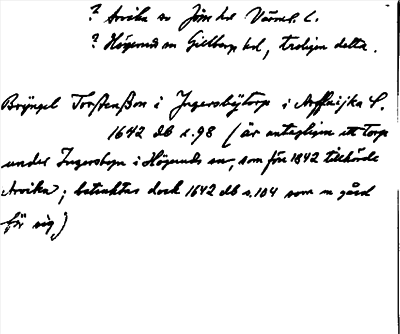 ? Arvika sn Jösse hd Värml. l.
? Högerud sn Gillberg hd, troligen detta.
Bryngel Torstenßon i Jngersbÿtorp i Arffuijka S.
1642 db s. 98 (är antagligen ett torp
under Ingersbyn i Högeruds sn, som före 1842 tillhörde
Arvika; betraktas dock 1642 db s. 104 som en gård
för sig)